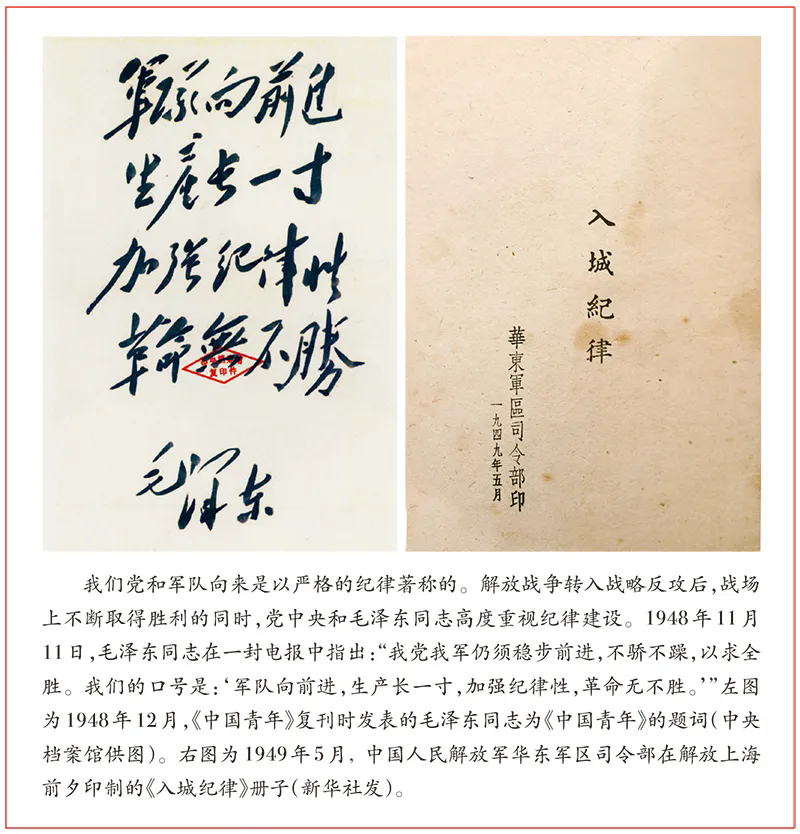 軍队向前進
生産长一寸
加强纪律性
革命無不勝
复印件
毛泽东
入城紀律
華東軍區司令部印
一九四九年五月
我们党和军队向来是以严格的纪律著称的。解放战争转入战略反攻后,战场
上不断取得胜利的同时,党中央和毛泽东同志高度重视纪律建设。1948年11月
11日,毛泽东同志在一封电报中指出:“我党我军仍须稳步前进,不骄不躁,以求全
胜。我们的口号是:‘军队向前进,生产长一寸,加强纪律性,革命无不胜。’”左图
为1948年12月,《中国青年》复刊时发表的毛泽东同志为《中国青年》的题词(中央
档案馆供图)。右图为1949年5月,中国人民解放军华东军区司令部在解放上海
前夕印制的《入城纪律》册子(新华社发)。